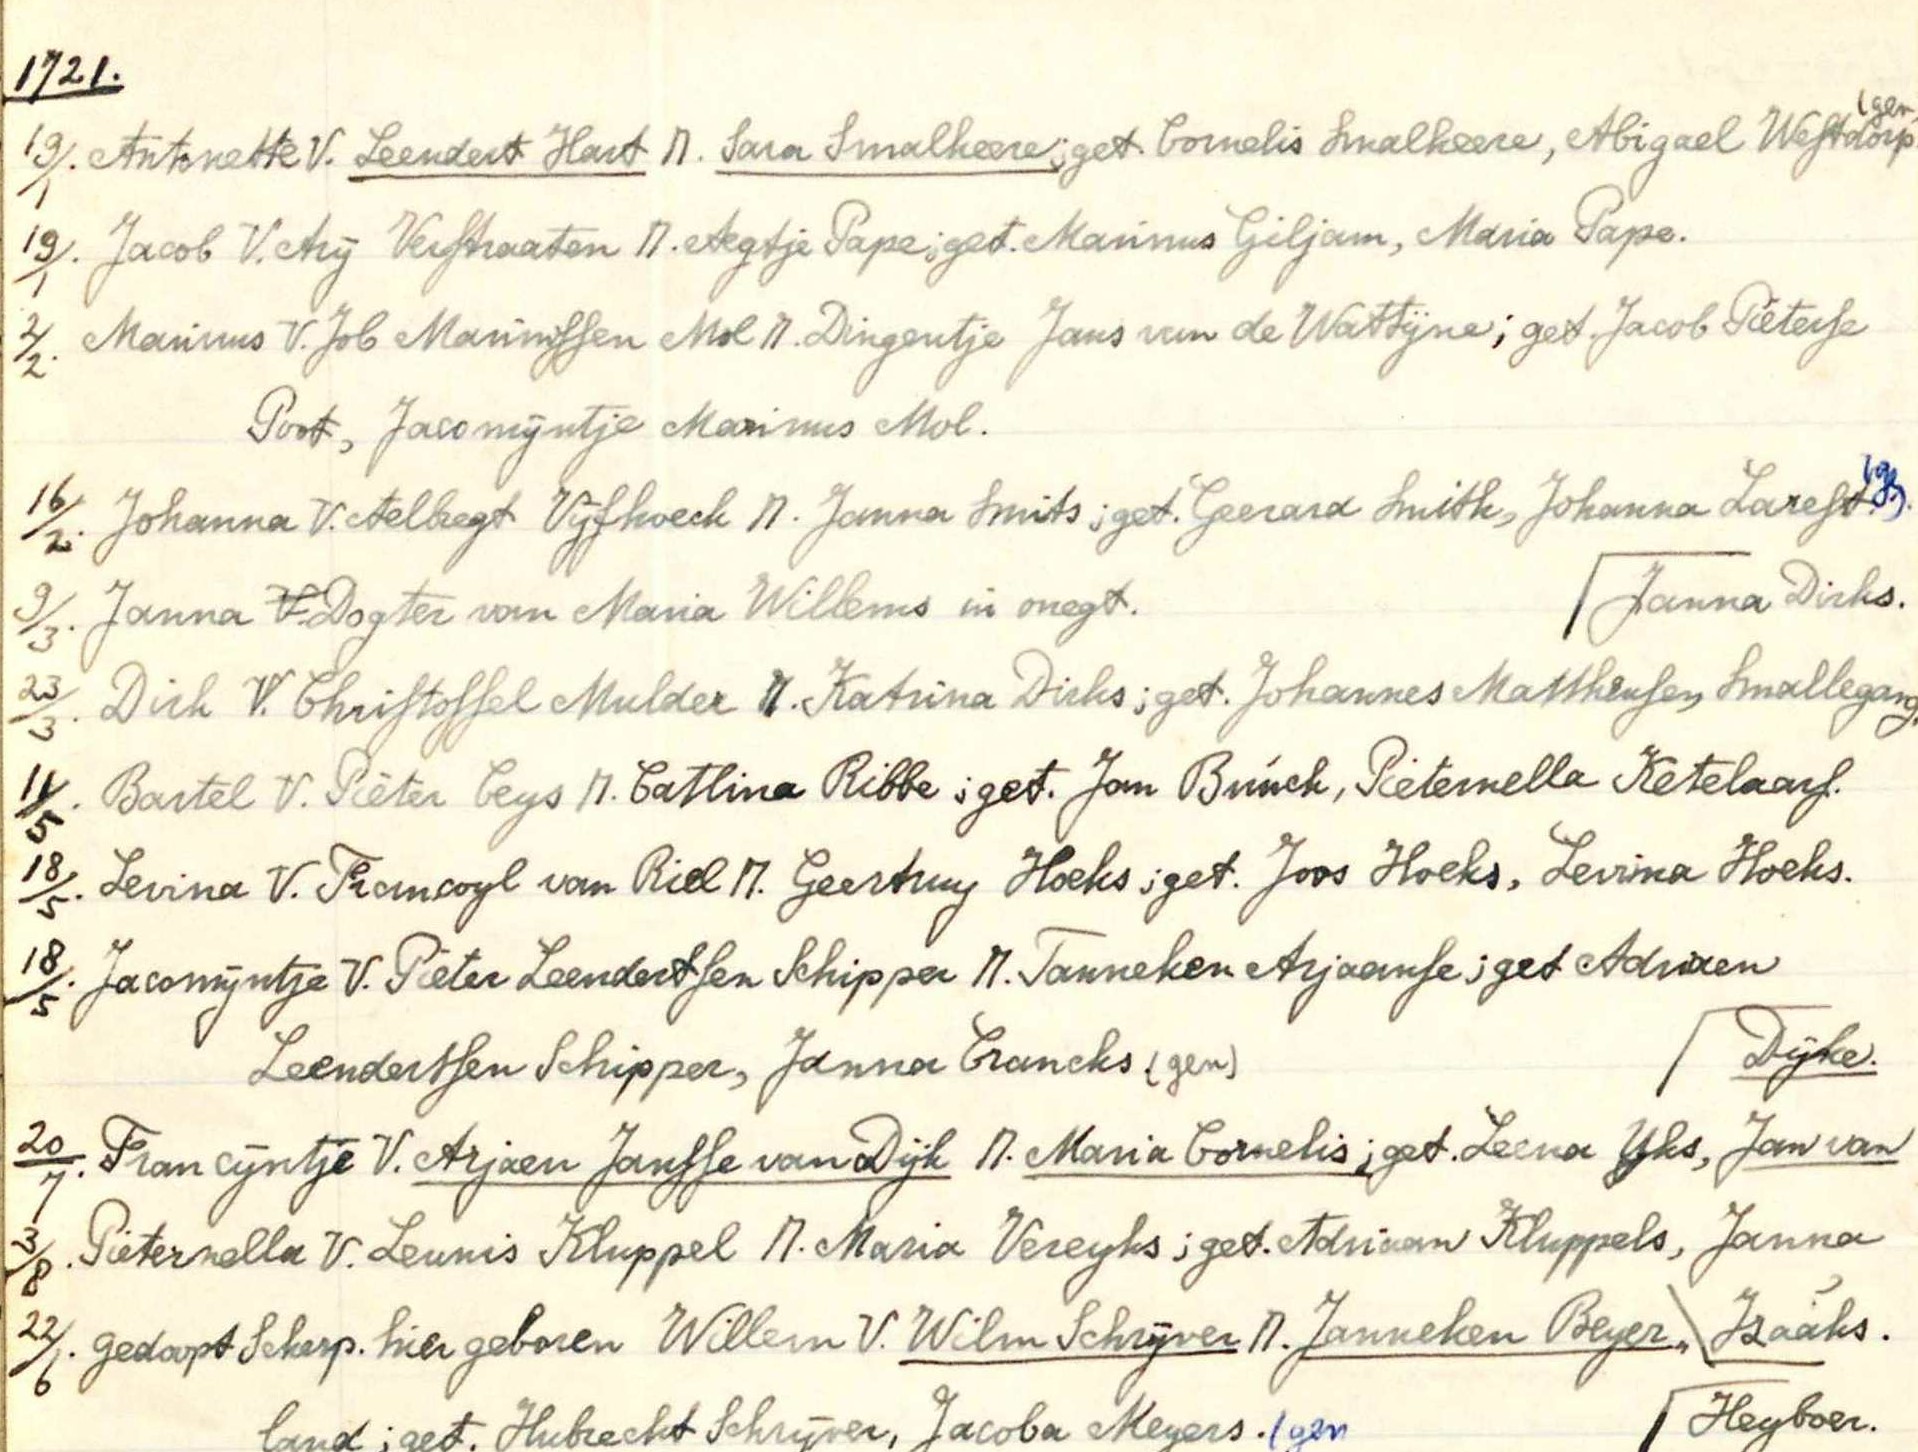 1721.
(gen.
19/1. Antonette V. Leendert Hart M. Sara Smalheere; get. Cornelis Smalheere, Abigael Westdorp
19/1. Jacob V. Arÿ Verstraaten M. Aegtje Pape; get. Marinus Giljam, Maria Pape.
2/2. Marinus V. Job Marinissen Mol M. Dingentje Jans van de Wattÿne; get. Jacob Pieterse
Poot, Jacomÿntje Marinus Mol.
16/2. Johanna V. Aelbregt Vÿfhoeck M. Janna Smits; get. Geerard Smith, Johanna Larest.
9/3. Janna V. Dogter van Maria Willems in onegt. Janna Dirks.
23/3. Dirk V. Christoffel Mulder M. Katrina Dirks; get. Johannes Mattheusen Smallegang,
11/5. Bartel V. Pieter Ceys M. Catlina Ribbe; get. Jan Buuck, Pieternella Ketelaars.
18/5. Levina V. Francoys van Riel M. Geertruy Hoeks; get. Joos Hoeks, Levina Hoeks.
18/5. Jacomÿntje V. Pieter Leendertsen Schipper M. Tanneken Arjaanse; get Adriaen
Leendertsen Schipper, Janna Crancks (gen) Dÿke.
20/7. Francÿntje V. Arjaen Jansse van Dÿk M. Maria Cornelis; get. Leena Yks, Jan van
3/8. Pieternella V. Leunis Kluppel M. Maria Vereyks; get. Adriaan Kluppels, Janna
22/6. gedoopt Scherp. hier geboren Willem V. Wilm Schrÿver M. Janneken Beyer„ Izaäks.
land; get. Hubrecht Schrÿver, Jacoba Meyers. (gen Heyboer.